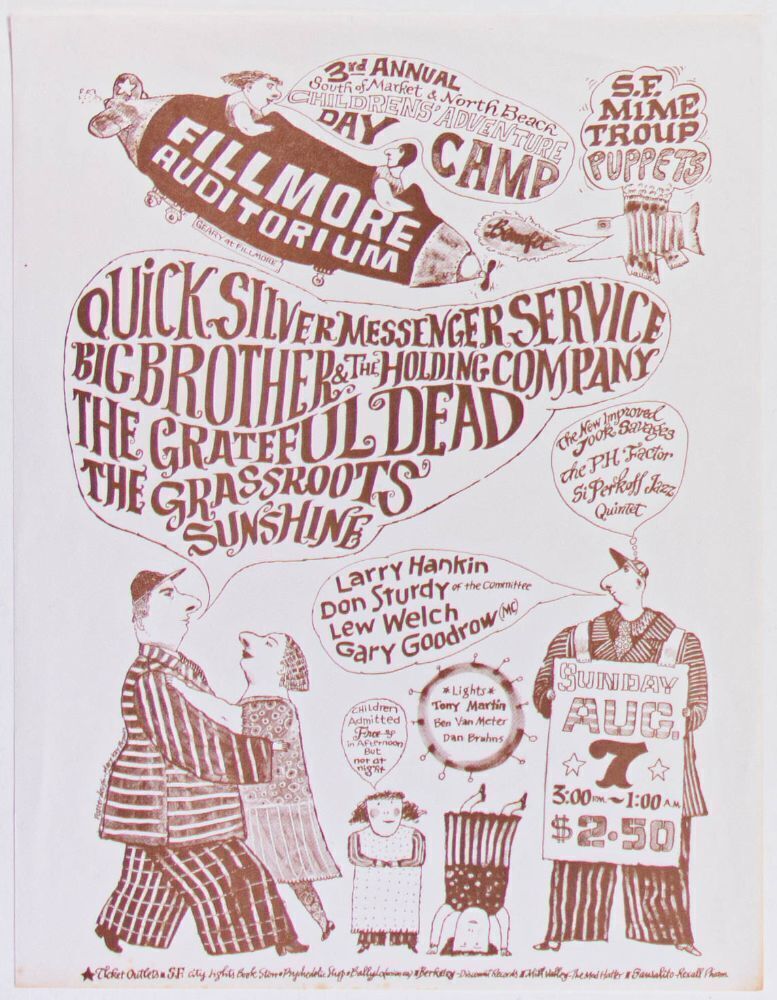 3rd ANNUAL
South of Market & North Beach
CHILDRENS' ADVENTURE
DAY
CAMP
S.F.
MIME
TROUP
PUPPETS
FILLMORE
AUDITORIUM
GEARY at FILLMORE
Benefit
QUICKSILVER MESSENGER SERVICE
BIG BROTHER & THE HOLDING COMPANY
THE GRATEFUL DEAD
THE GRASSROOTS
SUNSHINE
The New Improved
Jook Savages
The P.H. Factor
Si Perkoff Jazz
Quintet
Larry Hankin
Don Sturdy of the Committee
Lew Welch
Gary Goodrow (MC)
*Lights*
Tony Martin
Ben Van Meter
Dan Bruhns
Children
Admitted
Free
in Afternoon
But
not at
night
SUNDAY
AUG.
7
3:00 P.M. ~ 1:00 A.M.
$2.50
★ Ticket Outlets S.F. City Lights Book Store Psychedelic Shop Bally Lo Berkeley - Discount Records Mill Valley - The Mad Hatter Sausalito - Rexall Pharm.